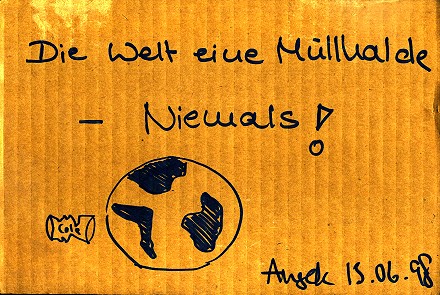 Die Welt eine Müllhalde
– Niemals!
Cola
15.06.98